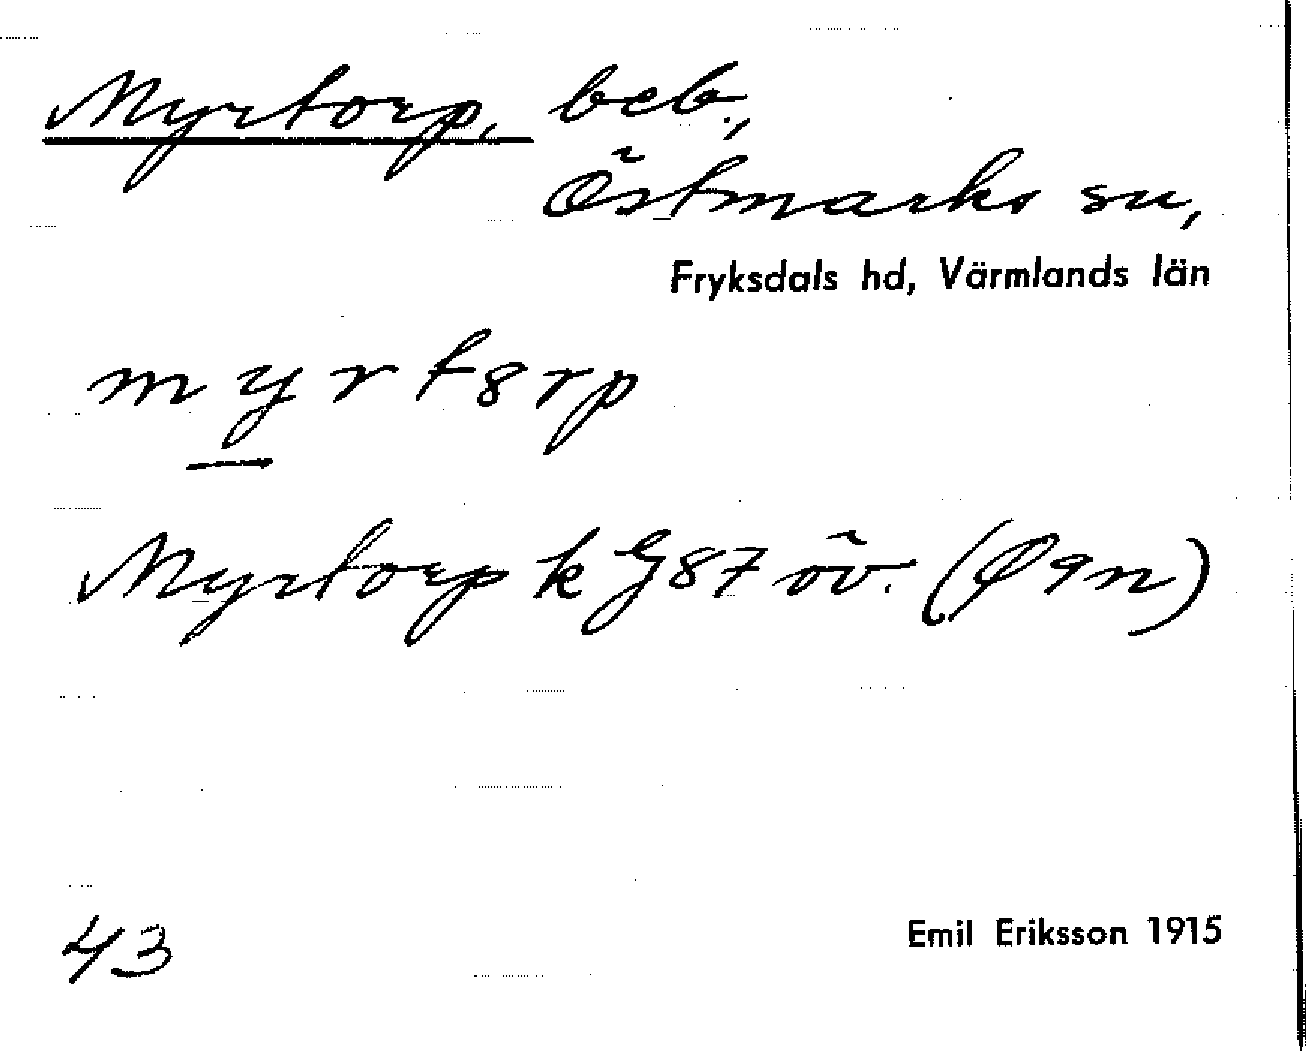 Myrtorp, beb.,
Östmarks sn,
Fryksdals hd, Värmlands län
myrt8rp
Myrtorp k G87 öv. (Ø9n)
43
Emil Eriksson 1915